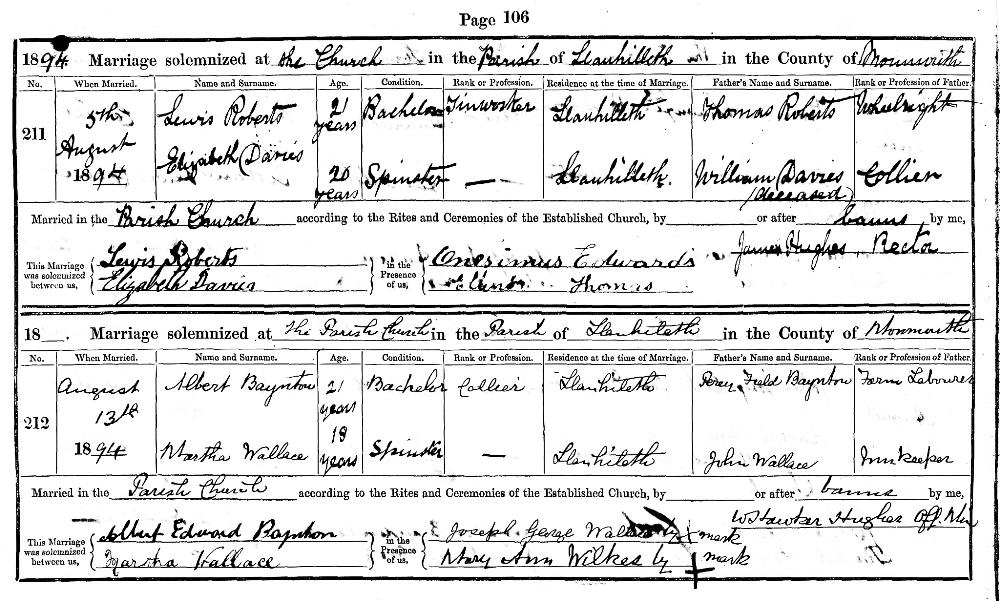 Page 106
1894 Marriage solemnized at the Church in the Parish of Llanhilleth in the County of Monmouth
No. When Married. Name and Surname. Age. Condition. Rank or Profession. Residence at the time of Marriage. Father's Name and Surname. Rank or Profession of Father.
211 5th August 1894 Lewis Roberts 21 years Bachelor Tinworker Llanhilleth Thomas Roberts Wheelright
Elizabeth Davies 20 years Spinster — Llanhilleth. William Davies (deceased) Collier
Married in the Parish Church according to the Rites and Ceremonies of the Established Church, by or after banns by me,
James Hughes, Rector
This Marriage was solemnized between us, Lewis Roberts Elizabeth Davies in the Presence of us, Onesimus Edwards Thomas
18 . Marriage solemnized at the Parish Church in the Parish of Llanhileth in the County of Monmouth
No. When Married. Name and Surname. Age. Condition. Rank or Profession. Residence at the time of Marriage. Father's Name and Surname. Rank or Profession of Father.
212 August 13th 1894 Albert Baynton 21 years Bachelor Collier Llanhileth Percy Field Baynton Farm Labourer
Martha Wallace 19 years Spinster — Llanhileth John Wallace Innkeeper
Married in the Parish Church according to the Rites and Ceremonies of the Established Church, by or after banns by me,
Hughes Off. Min
This Marriage was solemnized between us, Albert Edward Baynton Martha Wallace in the Presence of us, Joseph George X mark Mary Ann Wilkes by X mark